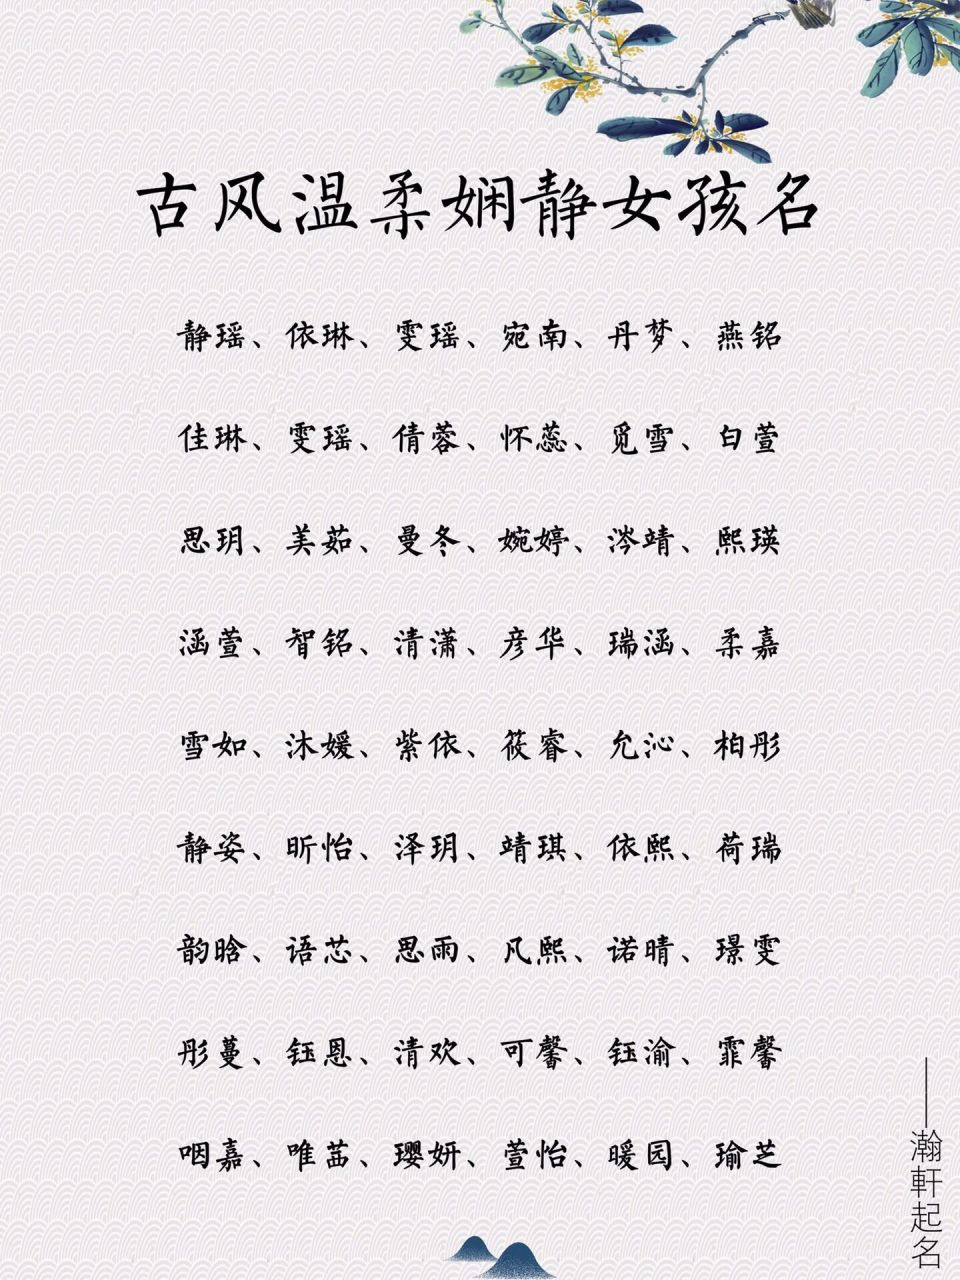 古风温柔娴静女孩名
静瑶、依琳、雯瑶、宛南、丹梦、燕铭
佳琳、雯瑶、倩蓉、怀蕊、觅雪、白萱
思玥、美茹、曼冬、婉婷、涔靖、熙瑛
涵萱、智铭、清潇、彦华、瑞涵、柔嘉
雪如、沐媛、紫依、筱睿、允沁、柏彤
静姿、昕怡、泽玥、靖琪、依熙、荷瑞
韵晗、语芯、思雨、凡熙、诺晴、璟雯
彤蔓、钰恩、清欢、可馨、钰渝、霏馨
咽嘉、唯茁、璎妍、萱怡、暖园、瑜芝
——瀚軒起名